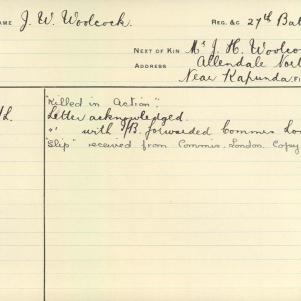 NAME J. W. Woolcock. REG. &C 27th Bat
NEXT OF KIN Mr J. H. Woolco
ADDRESS Allendale Nort
Near Kapunda.
"Killed in Action".
Letter acknowledged.
" with forwarded Commis Lo
"Slip" received from Commis. London. Copy